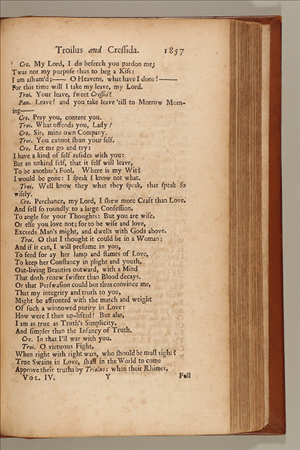 Troilus and Cressida. 1857
Cre. My Lord, I do beseech you pardon me;
'Twas not my purpose thus to beg a Kiss:
I am asham'd;—— O Heavens, what have I done! ——
For this time will I take my leave, my Lord.
Troi. Your leave, sweet Cressid?
Pan. Leave! and you take leave 'till to Morrow Morn-
ing——
Cre. Pray you, content you.
Troi. What offends you, Lady?
Cre. Sir, mine own Company.
Troi. You cannot shun your self.
Cre. Let me go and try:
I have a kind of self resides with you:
But an unkind self, that it self will leave,
To be another's Fool. Where is my Wit?
I would be gone: I speak I know not what.
Troi. Well know they what they speak, that speak so
wisely.
Cre. Perchance, my Lord, I shew more Craft than Love,
And fell so roundly to a large Confession,
To angle for your Thoughts: But you are wise,
Or else you love not; for to be wise and love,
Exceeds Man's might, and dwells with Gods above.
Troi. O that I thought it could be in a Woman:
And if it can, I will presume in you,
To feed for ay her lamp and flames of Love,
To keep her Constancy in plight and youth,
Out-living Beauties outward, with a Mind
That doth renew swifter than Blood decays.
Or that Perswasion could but thus convince me,
That my integrity and truth to you,
Might be affronted with the match and weight
Of such a winnowed purity in Love:
How were I then up-lifted! But alas,
I am as true as Truth's Simplicity,
And simpler than the Infancy of Truth.
Cre. In that I'll war with you.
Troi. O virtuous Fight,
When right with right wars, who should be most right!
True Swains in Love, shall in the World to come
Approve their truths by Troilus: when their Rhimes,
VOL. IV. Y Full